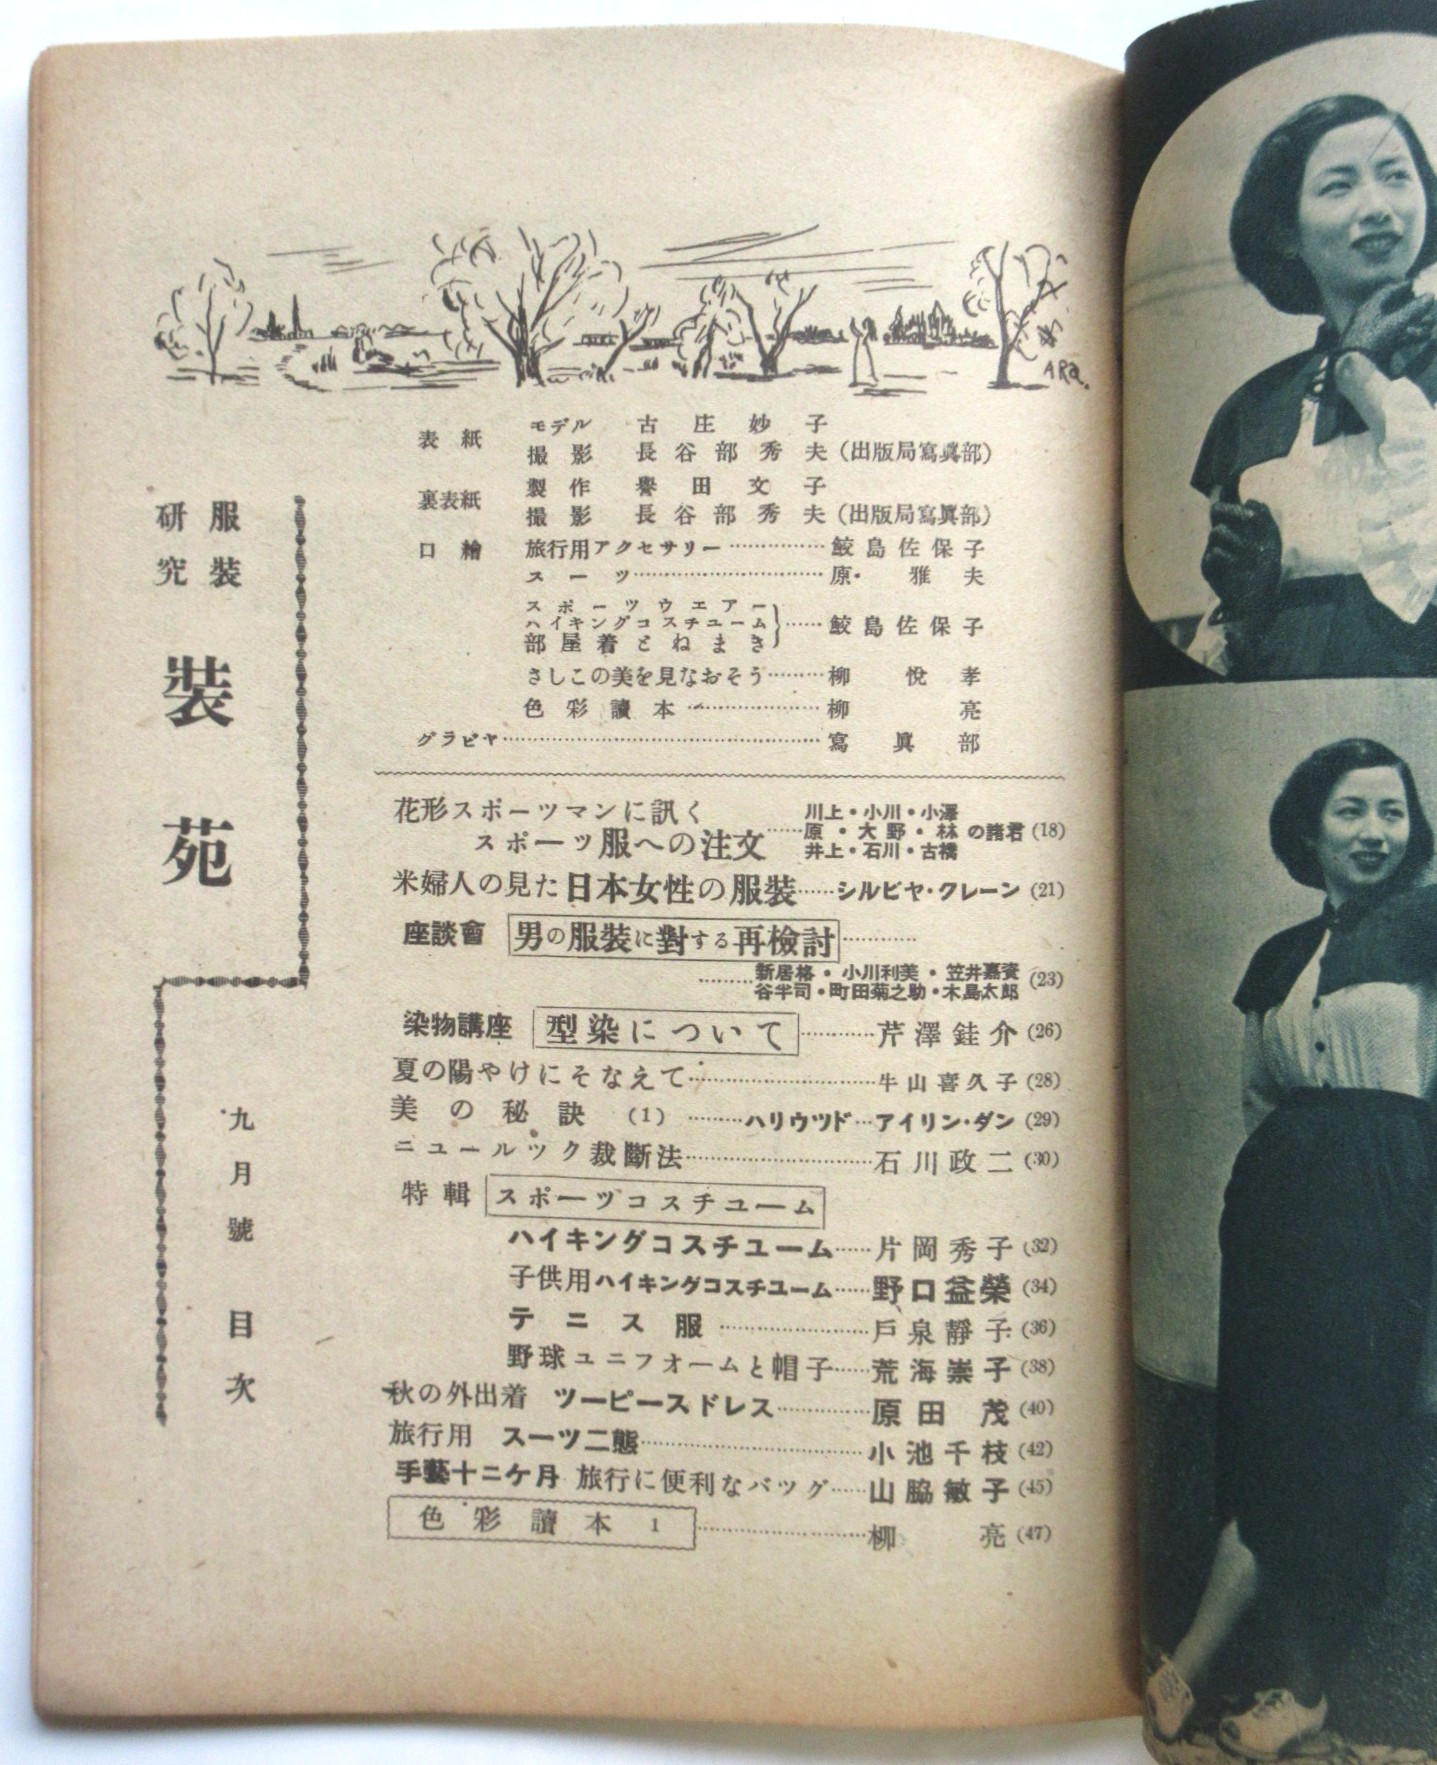 ARa.
服裝
研究
裝苑
九月號 目次
表紙 モデル 古庄妙子
撮影 長谷部秀夫(出版局寫眞部)
裏表紙 製作 譽田文子
撮影 長谷部秀夫(出版局寫眞部)
口繪 旅行用アクセサリー……………鮫島佐保子
スーツ……………原・雅夫
スポーツウエアー
ハイキングコスチユーム
部屋着とねまき……鮫島佐保子
さしこの美を見なおそう………柳悅孝
色彩讀本……………柳亮
グラビヤ……………寫眞部
花形スポーツマンに訊く
スポーツ服への注文……川上・小川・小澤
原・大野・林の諸君 (18)
井上・石川・古橋
米婦人の見た日本女性の服裝……シルビヤ・クレーン (21)
座談會 男の服裝に對する再檢討…………
………新居格・小川利美・笠井嘉資
谷半司・町田菊之助・木島太郎 (23)
染物講座 型染について…………芹澤銈介 (26)
夏の陽やけにそなえて……………牛山喜久子 (28)
美の秘訣 (1) ………ハリウツド…アイリン・ダン (29)
ニュールック裁斷法……………石川政二 (30)
特輯 スポーツコスチユーム
ハイキングコスチユーム……片岡秀子 (32)
子供用ハイキングコスチユーム……野口益榮 (34)
テニス服……………戸泉靜子 (36)
野球ユニフオームと帽子……荒海崇子 (38)
秋の外出着 ツーピースドレス…………原田茂 (40)
旅行用 スーツ二態……………小池千枝 (42)
手藝十二ケ月 旅行に便利なバツグ……山脇敏子 (45)
色彩讀本 1……………柳亮 (47)